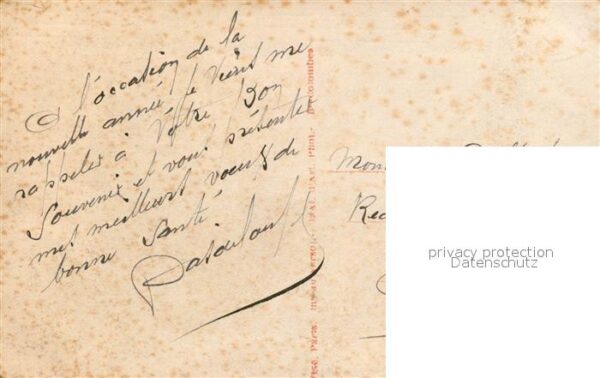 A l'occation de la
nouvelle année je viens me
rappeler à Votre bon
Souvenir et vous présenter
mes meilleurs voeux de
bonne Santé
Mon
Rec
privacy protection
Datenschutz